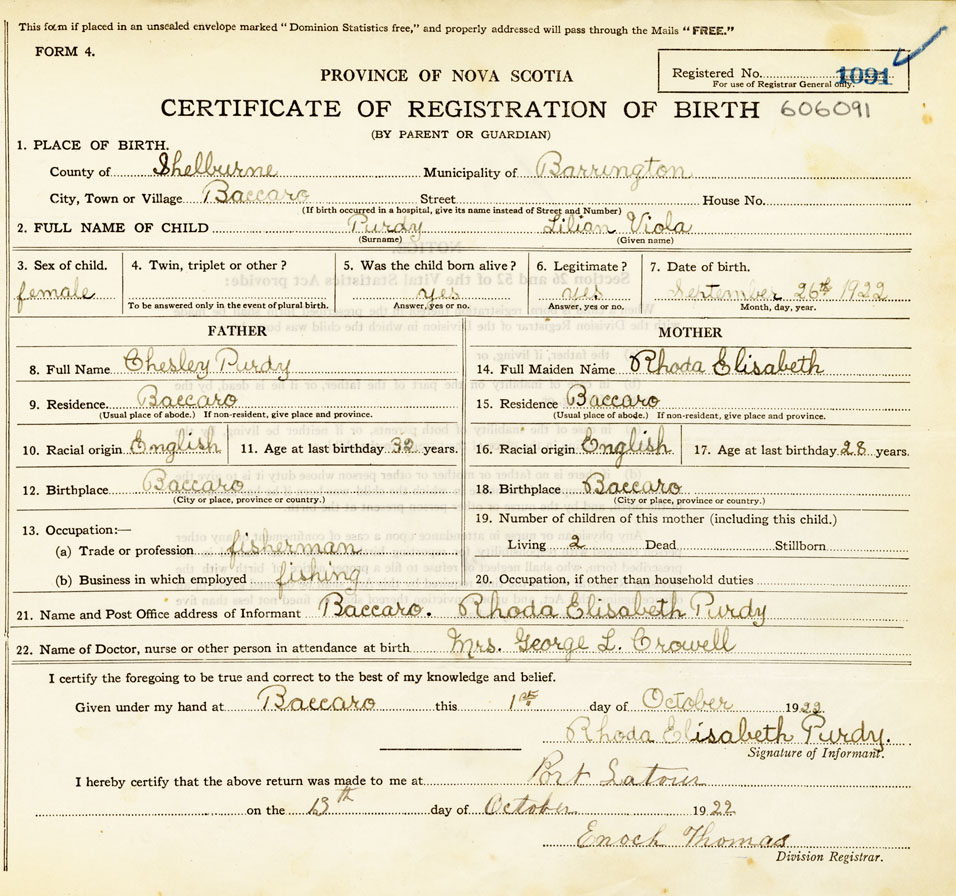 This form if placed in an unsealed envelope marked "Dominion Statistics free," and properly addressed will pass through the Mails "FREE."
FORM 4.
Registered No. 1091
For use of Registrar General only.
PROVINCE OF NOVA SCOTIA
CERTIFICATE OF REGISTRATION OF BIRTH 606091
(BY PARENT OR GUARDIAN)
1. PLACE OF BIRTH.
County of Shelburne Municipality of Barrington
City, Town or Village Baccaro Street House No.
(If birth occurred in a hospital, give its name instead of Street and Number)
2. FULL NAME OF CHILD Purdy Lilian Viola
(Surname) (Given name)
3. Sex of child. 4. Twin, triplet or other? 5. Was the child born alive? 6. Legitimate? 7. Date of birth.
female yes yes September 26th 1922
To be answered only in the event of plural birth. Answer, yes or no. Answer, yes or no. Month, day, year.
FATHER MOTHER
8. Full Name Chesley Purdy 14. Full Maiden Name Rhoda Elisabeth
9. Residence Baccaro 15. Residence Baccaro
(Usual place of abode.) If non-resident, give place and province. (Usual place of abode.) If non-resident, give place and province.
10. Racial origin English 11. Age at last birthday 32 years. 16. Racial origin English 17. Age at last birthday 28 years.
12. Birthplace Baccaro 18. Birthplace Baccaro
(City or place, province or country.) (City or place, province or country.)
13. Occupation:— 19. Number of children of this mother (including this child.)
(a) Trade or profession fisherman Living 2 Dead Stillborn
(b) Business in which employed fishing 20. Occupation, if other than household duties
21. Name and Post Office address of Informant Baccaro. Rhoda Elisabeth Purdy
22. Name of Doctor, nurse or other person in attendance at birth Mrs. George L. Crowell
I certify the foregoing to be true and correct to the best of my knowledge and belief.
Given under my hand at Baccaro this 1st day of October 1922
Rhoda Elisabeth Purdy.
Signature of Informant.
I hereby certify that the above return was made to me at Port Latour
on the 13th day of October 1922
Enoch Thomas
Division Registrar.